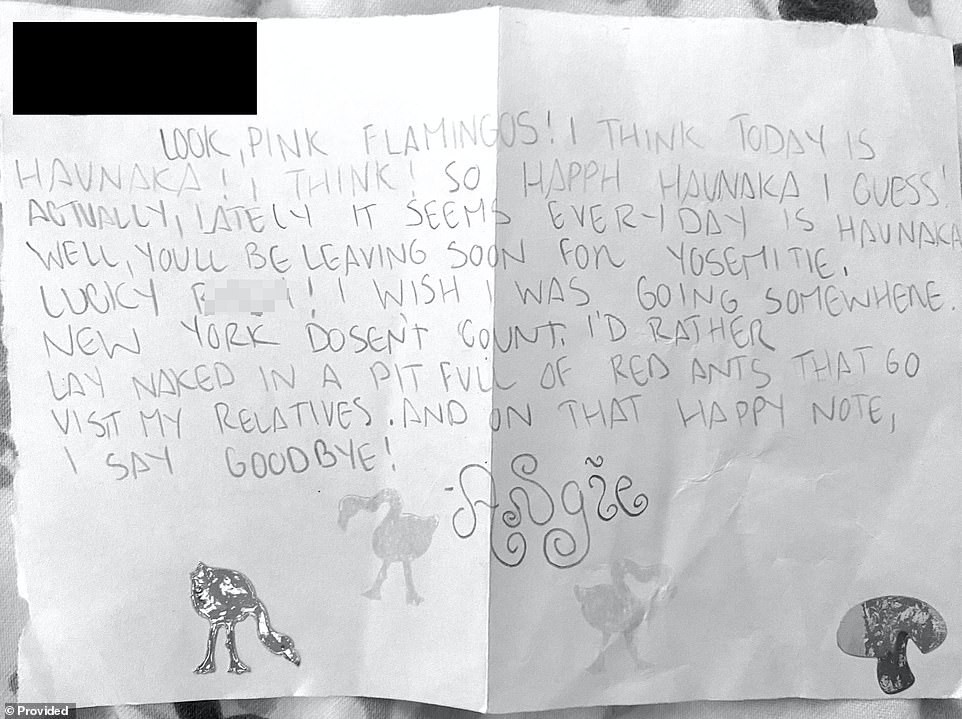 LOOK, PINK FLAMINGOS! I THINK TODAY IS
HAUNAKA! I THINK! SO HAPPH HAUNAKA I GUESS!
ACTUALLY, LATELY IT SEEMS EVERYDAY IS HAUNAKA
WELL, YOULL BE LEAVING SOON FOR YOSEMITIE.
LUCKY ! I WISH I WAS GOING SOMEWHERE.
NEW YORK DOSEN'T COUNT. I'D RATHER
LAY NAKED IN A PIT FULL OF RED ANTS THAT GO
VISIT MY RELATIVES. AND ON THAT HAPPY NOTE,
I SAY GOODBYE!
-ANgie
© Provided